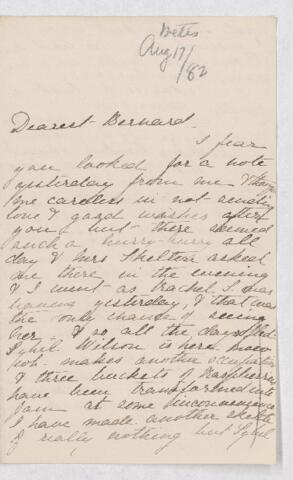 Metis
Aug 17/
/82
Dearest Bernard.
I fear
you looked for a note
yesterday from me &
me careless in not sending
love & good wishes after
you, but there seemed
such a hurry-hurry all
day & Mrs Shelton asked
me there in the evening
& I went as Rachel S. was
leaving yesterday, & that was
the only chance of seeing
her, & so all the day
Sybil Wilson is here now
makes another occupation
& three buckets of Raspberries
have been transformed into
jam at some inconvenience
I have made another sketch
& really nothing but Sybil